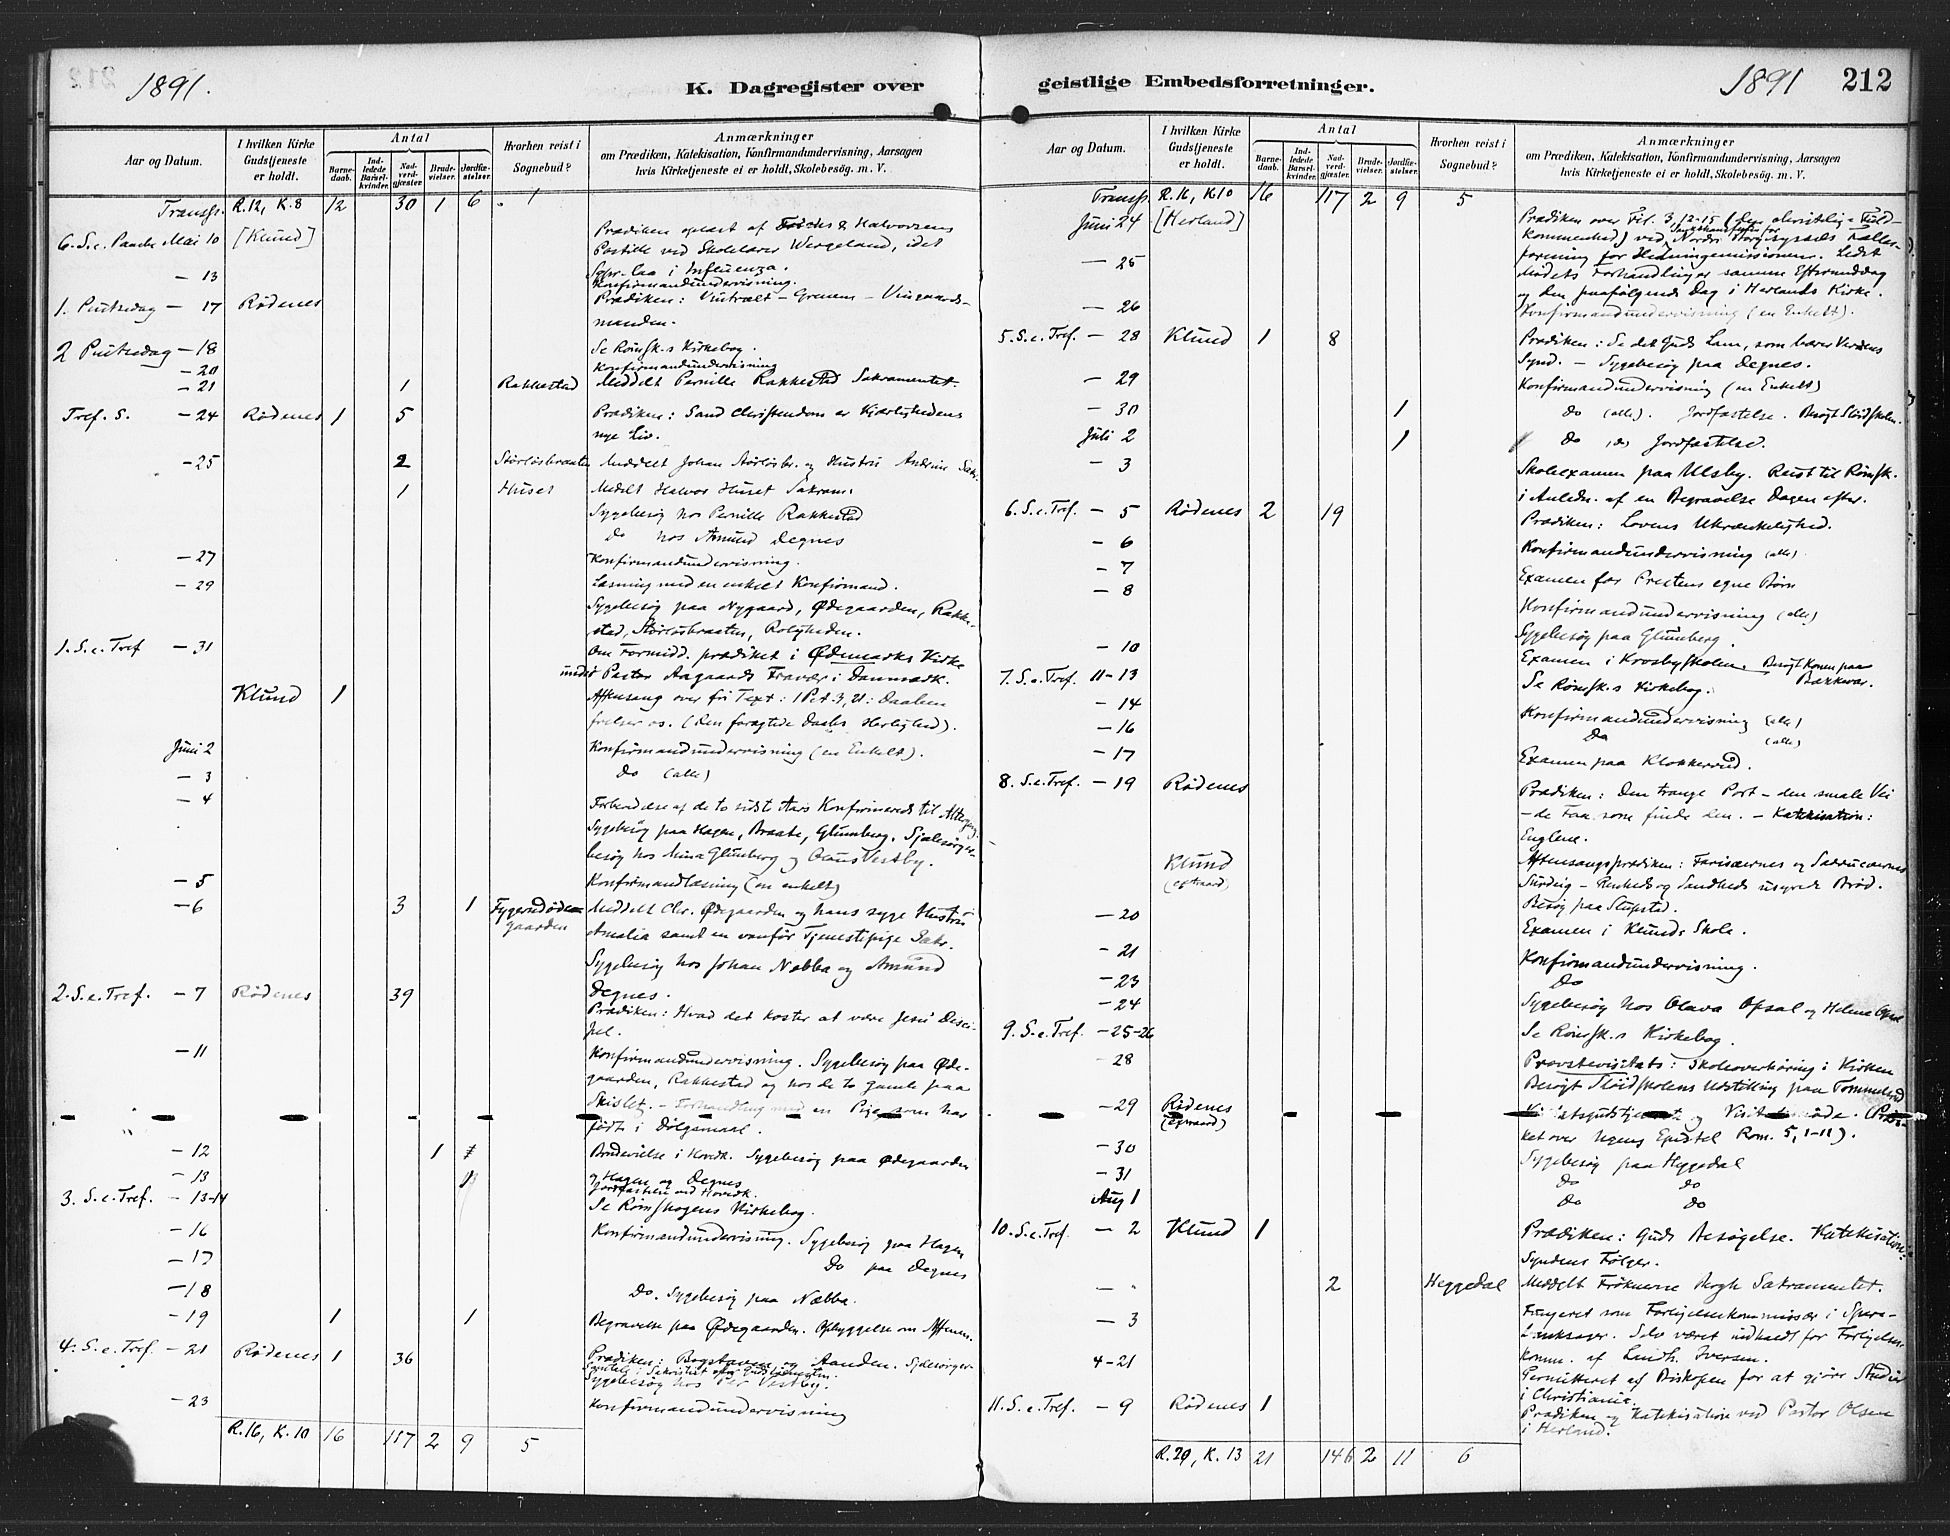 1891.
K. Dagregister over
Aar og Datum.
I hvilken Kirke Gudstjeneste er holdt.
Antal
Barnedaab.
Indledede Barselkvinder.
Nadverdgjæster
Brudevielser.
Jordfæstelser.
Hvorhen reist i Sognebud?
Anmærkninger
om Prædiken, Katekisation, Konfirmandundervisning, Aarsagen
hvis Kirketjeneste ei er holdt, Skolebesøg. m. V.
Transp. R.12, K.8 12 30 1 6 1
6. S. e. Paaske Mai 10 [Klund] Prædiken oplæst af & Halvorsens
Postille ved Skolelærer Wergeland, idet
Sogn. laa i Influenza.
— 13 Konfirmandundervisning.
1. Pintsedag — 17 Rødenes Prædiken: Vintræet – Grenen – Vingaards-
manden.
2 Pintsedag — 18 Se Rømsk.s Kirkebog.
— 20 Konfirmandundervisning
— 21 1 Rakkestad Meddelt Pernille Rakkestad Sakramentet.
Tref. S. — 24 Rødenes 1 5 Prædiken: Sand Christendom er Kjærlighedens
nye Liv.
— 25 2 Störlösbraaten Meddelt Johan Störlösbr. og Hustru Andrine Sakr.
1 Huset Meddelt Halvor Huset Sakram:
Sygebesøg hos Pernille Rakkestad
Do hos Amund Degnes
— 27 Konfirmandundervisning.
— 29 Læsning med en enkelt Konfirmand.
Sygebesøg paa Nygaard, Ødegaarden, Rakke-
stad, Störlösbraaten, Rolgheden.
1. S. e. Tref — 31 Om Formidd. prædiket i Ødemarks Kirke
under Pastor Aagaards Fravær i Danmark.
Klund 1 Aftensang over fri Text: 1 Pet. 3, 21: Daaben
frelser os. (Den foragtede Daabs Herlighed).
Juni 2 Konfirmandundervisning (en Enkelt).
— 3 Do (alle)
— 4 Forberedelse af de to sidst Aars Konfirmerede til Altergang.
Sygebesøg paa Hagen, Braate, Glumberg. Sjælesørger-
besøg hos Mina Glumberg og Olaus Vestby.
— 5 Konfirmandlæsning (en enkelt)
— 6 3 1 Meddelt Chr. Ødegaarden og hans syge Hustru
gaarden Amalia samt en vanför Tjenestepige Sakr.
Sygebesøg hos Johan Næbba og Amund
Degnes.
2. S. e. Tref. — 7 Rødenes 39 Prædiken: Hvad det koster at være Jesu Disci-
pel.
— 11 Konfirmandundervisning. Sygebesøg paa Øde-
gaarden, Rakkestad og hos de to gamle paa
Skislet. – Forhandling med en Pige som har
født i Dølgsmaal.
— 12 1 Brudevielse i Hovedk. Sygebesøg paa Ødegaarden
— 13 og Hagen og Degnes
Jordfæstelse ved Hovedk.
3. S. e. Tref. — 13-14 Se Rømskogens Kirkebog.
— 16 Konfirmandundervisning. Sygebesøg paa Hagen
— 17 Do paa Degnes
— 18 Do. Sygebesøg paa Næbba.
— 19 1 1 Begravelse paa Ødegaarden. Opbyggelse om Aftenen.
4. S. e. Tref. — 21 Rødenes 1 36 Prædiken: Bogstaven og Aanden. Sjælesørger-
Samtale i Sakristiet efter Gudstjenesten.
Sygebesøg hos Per Vestby.
— 23 Konfirmandundervisning
R.16, K.10 16 117 2 9 5
geistlige Embedsforretninger.
1891 212
Aar og Datum.
I hvilken Kirke Gudstjeneste er holdt.
Antal
Barnedaab.
Indledede Barselkvinder.
Nadverdgjæster
Brudevielser.
Jordfæstelser.
Hvorhen reist i Sognebud?
Anmærkninger
om Prædiken, Katekisation, Konfirmandundervisning, Aarsagen
hvis Kirketjeneste ei er holdt, Skolebesøg. m. V.
Transp. R.16, K.10 16 117 2 9 5
Juni 24 [Herland] Prædiken over Fil. 3, 12-15 (Den christelige Fuld-
kommenhed) ved Nordre Borgesyssels Fælles-
— 25 forening for Hedningemissionen. Ledet
Mødets Forhandlinger samme Eftermiddag
og den paafølgende Dag i Herlands Kirke.
— 26 Konfirmandundervisning (en Enkelt).
5. S. e. Tref. — 28 Klund 1 8 Prædiken: Se det Guds Lam, som bærer Verdens
Synd. – Sygebesøg paa Degnes.
— 29 Konfirmandundervisning (en Enkelt)
— 30 1 Do (alle). Jordfæstelse. Besøgt Slöidskolen.
Juli 2 1 Do Jordfæstelse.
— 3 Skoleexamen paa Ulsby. Reist til Rømsk.
i Anledn. af en Begravelse Dagen efter.
6. S. e. Tref. — 5 Rødenes 2 19 Prædiken: Lovens Ukrænkelighed.
— 6 Konfirmandundervisning (alle)
— 7 Examen for Prestens egne Børn
— 8 Konfirmandundervisning (alle)
Sygebesøg paa Glumberg.
— 10 Examen i Krosbyskolen. Besøgt Konen paa
Bækkevar.
7. S. e. Tref. 11-13 Se Rømsk.s Kirkebog.
— 14 Konfirmandundervisning (alle)
— 16 Do (alle)
— 17 Examen paa Klokkerud.
8. S. e. Tref. — 19 Rødenes Prædiken: Den trange Port – den smale Vei
– de Faa som finde den. – Katekisation:
Englene.
Klund Aftensangsprædiken: Farisæernes og Sadducæernes
Surdeig – Renheds og Sandheds usyrede Brød.
— 20 Besøg paa Slupstad.
— 21 Examen i Klunds Skole.
— 23 Konfirmandundervisning.
Do
— 24 Sygebesøg hos Olava Opsal og Helene Opsal
9. S. e. Tref. — 25-26 Se Rømsk.s Kirkebog.
— 28 Provstevisitats: Skoleoverhøring i Kirken
Besøgt Slöidskolens Udstilling paa Tommelsrud
— 29 Rødenes Visitatsgudstjeneste og Visitatsmøde. (Prædi-
ket over Ugens Epistel Rom. 5, 1-11).
— 30 Sygebesøg paa Heggedal
— 31 Do Do
Aug 1 Do Do
10. S. e. Tref. — 2 Klund 1 Prædiken: Guds Besøgelse. Katekisation:
Syndens Følger.
— " 2 Heggedal Meddelt Frøknerne Krogh Sakramentet.
— 3 Fungeret som Forligelseskommissær i Spare-
banksager. Selv været indkaldt for Forligelses-
komm. af Landh. Iversen.
4-21 Permitteret af Biskopen for at gjøre Studier
i Christiania.
11. S. e. Tref. — 9 Rødenes 1 Prædiken og Katekisation ved Pastor Olsen
i Herland.
R.20, K.13 21 146 2 11 6